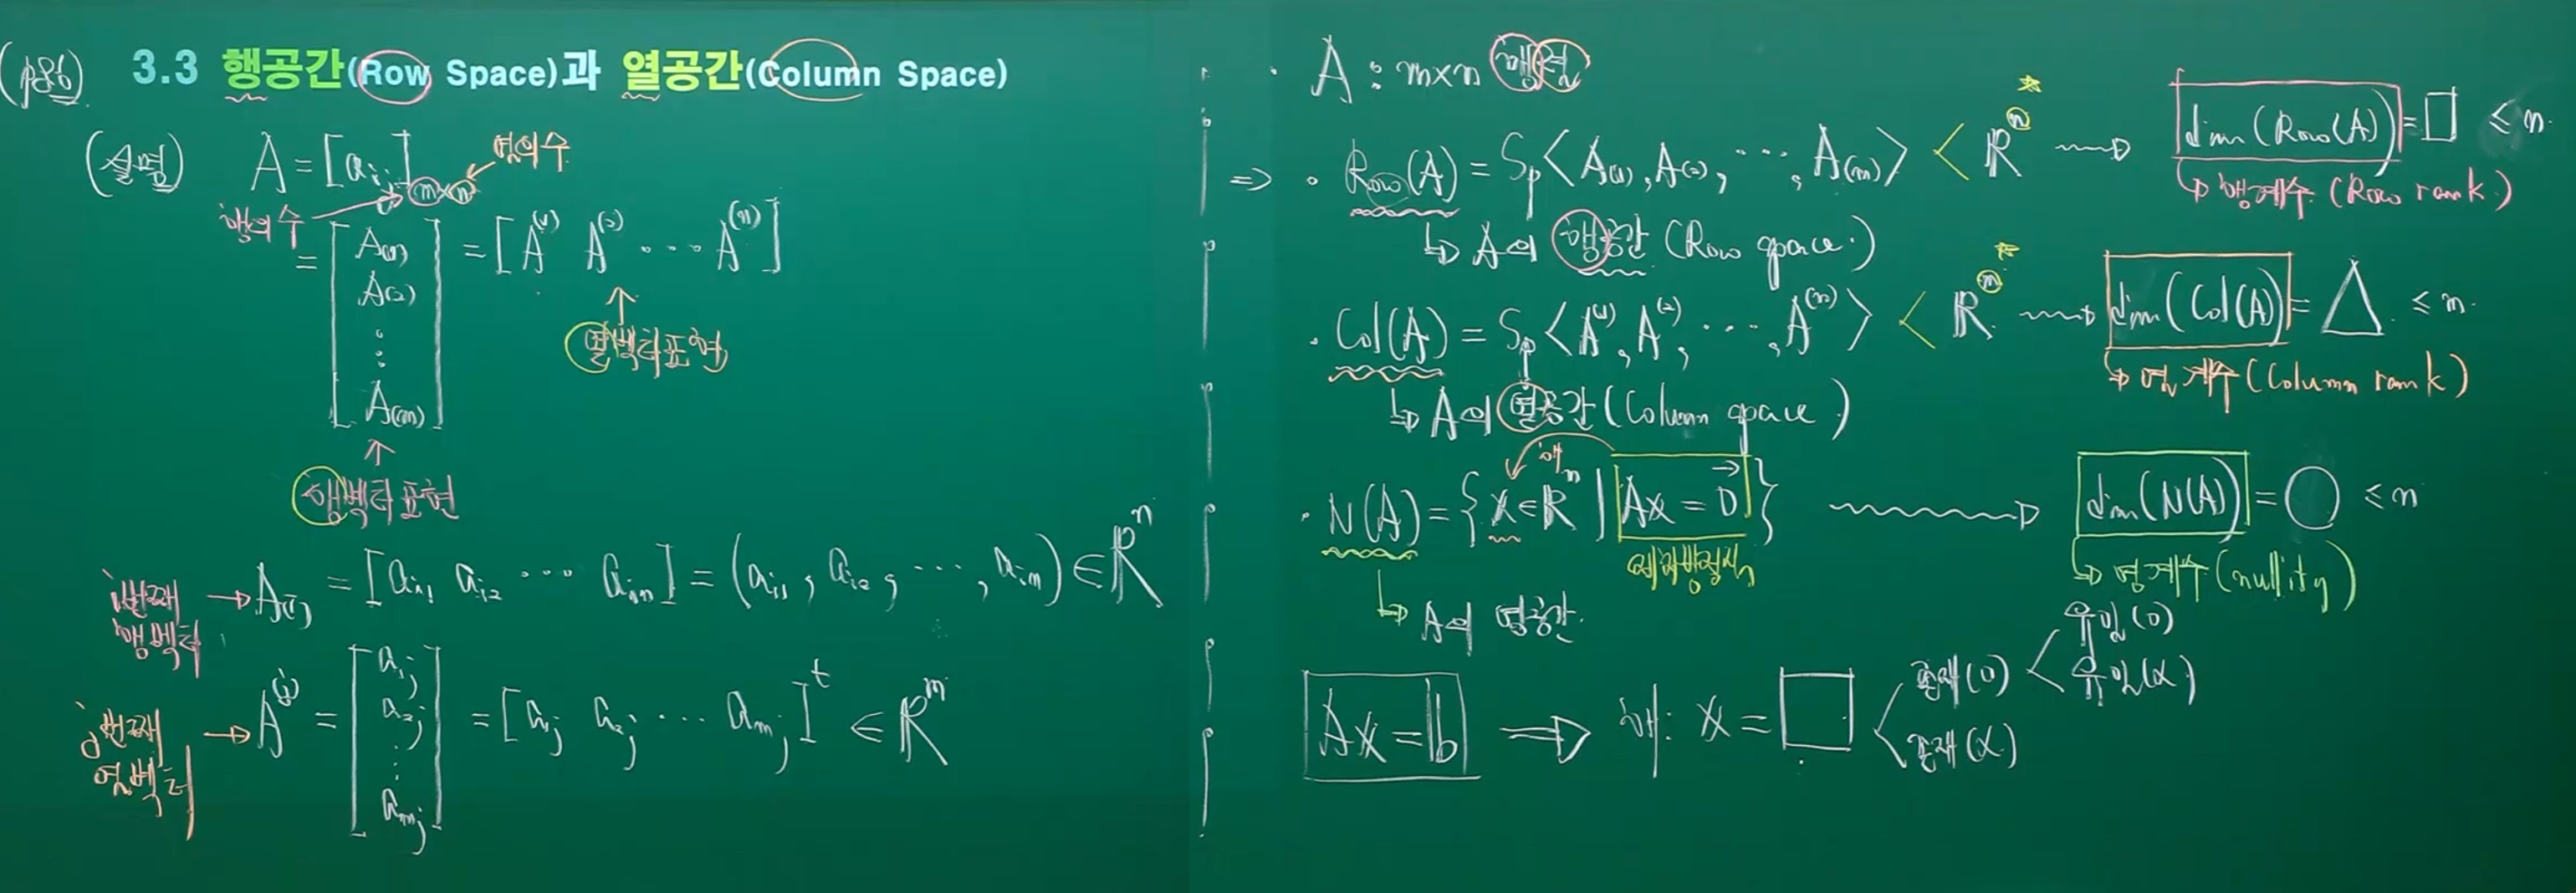 (p86) 3.3 행공간(Row Space)과 열공간(Column Space)
(설명) A = [aᵢⱼ]m×n 열의 수
행의 수
= [A₍₁₎ A₍₂₎ ⋮ A₍ₘ₎] = [A⁽¹⁾ A⁽²⁾ ⋯ A⁽ⁿ⁾]
↑ 열벡터 표현
↑ 행벡터 표현
i번째 행벡터 → A₍ᵢ₎ = [aᵢ₁ aᵢ₂ ⋯ aᵢₙ] = (aᵢ₁, aᵢ₂, ⋯, aᵢₙ) ∈ ℝⁿ
j번째 열벡터 → A⁽ʲ⁾ = [a₁ⱼ a₂ⱼ ⋮ aₘⱼ] = [a₁ⱼ a₂ⱼ ⋯ aₘⱼ]ᵗ ∈ ℝᵐ
· A : m×n 행렬
⇒ · Row(A) = Sp⟨A₍₁₎, A₍₂₎, ⋯, A₍ₘ₎⟩ < ℝⁿ ⟶ dim(Row(A)) = □ ≤ n.
↳ 행계수 (Row rank)
↳ A의 행공간 (Row space)
· Col(A) = Sp⟨A⁽¹⁾, A⁽²⁾, ⋯, A⁽ⁿ⁾⟩ < ℝᵐ ⟶ dim(Col(A)) = △ ≤ m.
↳ 열계수 (Column rank)
↳ A의 열공간 (Column space)
해
· N(A) = {x ∈ ℝⁿ | Ax = 0⃗} ⟶ dim(N(A)) = ○ ≤ n
연립방정식
↳ 영계수 (nullity)
↳ A의 영공간
Ax = b ⟹ 해: x = □ < 존재(O) < 유일(O)
유일(X)
존재(X)